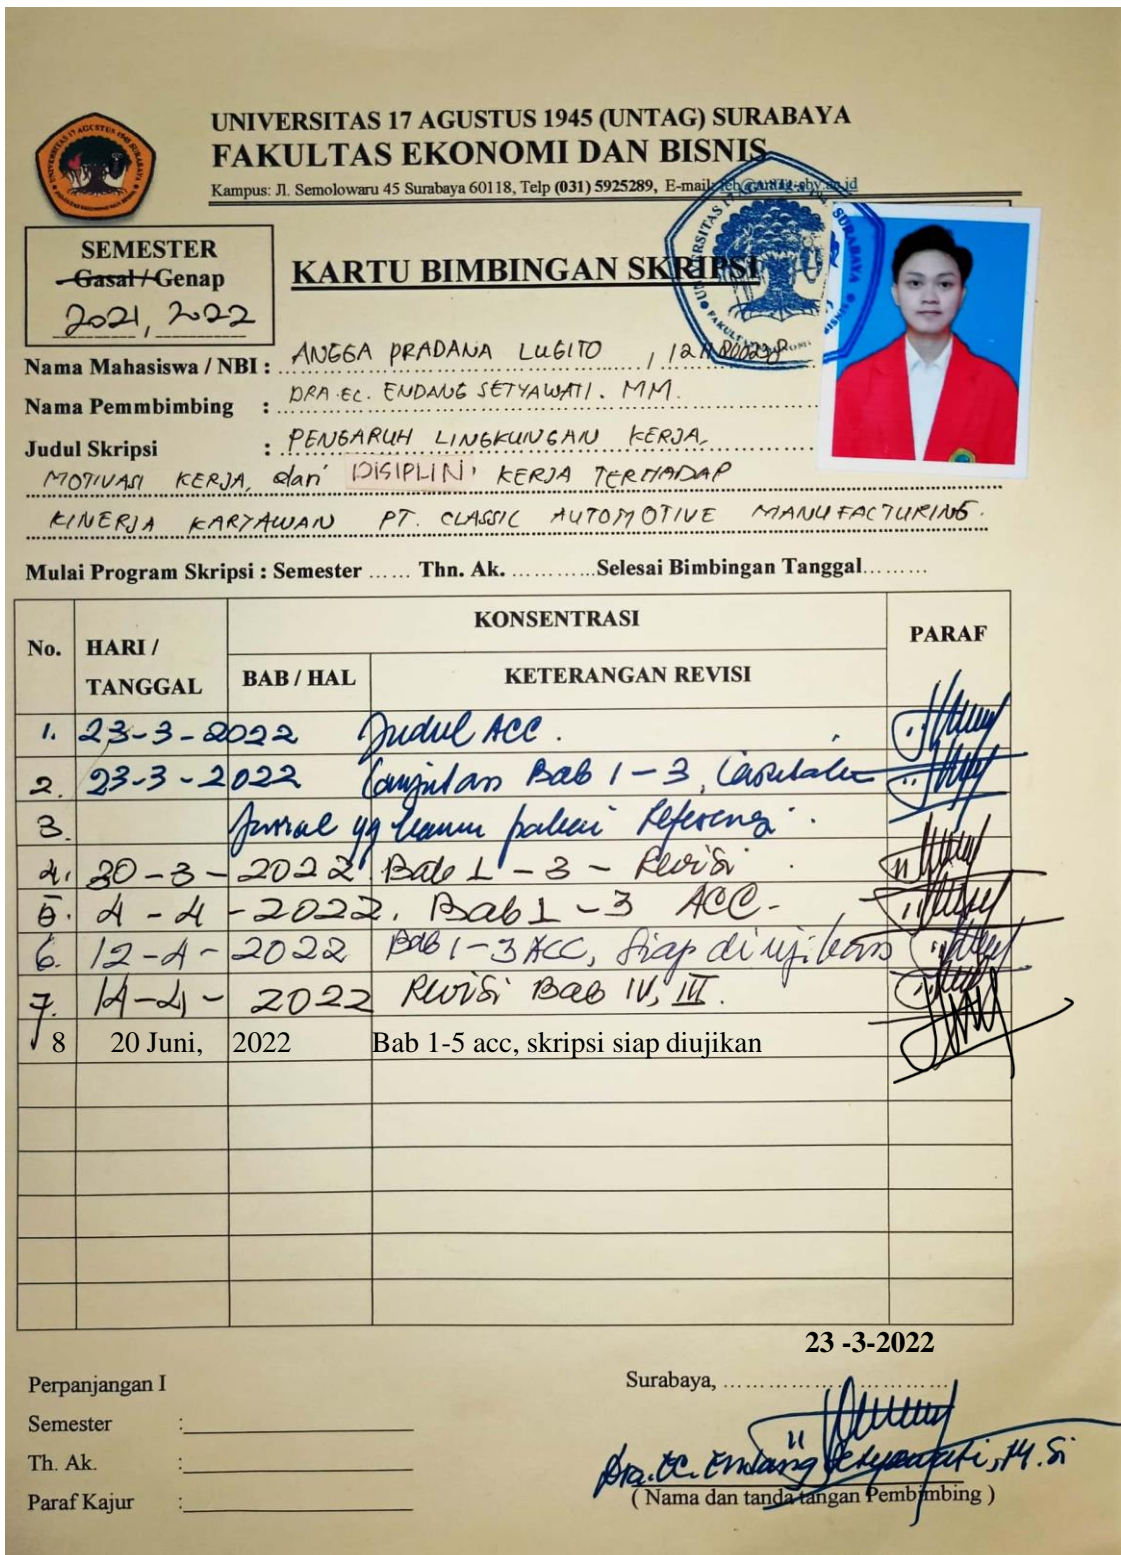 UNIVERSITAS 17 AGUSTUS 1945 (UNTAG) SURABAYA
FAKULTAS EKONOMI DAN BISNIS
Kampus: Jl. Semolowaru 45 Surabaya 60118, Telp (031) 5925289, E-mail: feb@untag-sby.ac.id
SEMESTER
Gasal / Genap
2021, 2022
KARTU BIMBINGAN SKRIPSI
Nama Mahasiswa / NBI : ANGGA PRADANA LUGITO ,
Nama Pemmbimbing : DRA.EC. ENDANG SETYAWATI. MM.
Judul Skripsi : PENGARUH LINGKUNGAN KERJA,
MOTIVASI KERJA, dan DISIPLIN KERJA TERHADAP
KINERJA KARYAWAN PT. CLASSIC AUTOMOTIVE MANUFACTURING.
Mulai Program Skripsi : Semester ...... Thn. Ak. ............Selesai Bimbingan Tanggal.........
No. HARI / TANGGAL KONSENTRASI PARAF
BAB / HAL KETERANGAN REVISI
1. 23-3-2022 Judul ACC.
2. 23-3-2022 Lanjutan Bab 1-3,
3. yg kamu pakai Referensi.
4. 30-3-2022 Bab 1-3 - Revisi
5. 4-4-2022. Bab 1-3 ACC-
6. 12-4-2022 Bab 1-3 ACC, Siap diujikan
7. 14-4-2022 Revisi Bab IV, III.
8 20 Juni, 2022 Bab 1-5 acc, skripsi siap diujikan
23 -3-2022
Perpanjangan I
Surabaya, ..............................
Semester :
Th. Ak. :
Dra. Ec. Endang Setyawati, M.Si
Paraf Kajur :
( Nama dan tanda tangan Pembimbing )